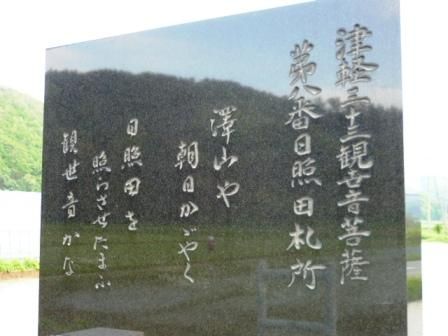 津軽三十三観世音菩薩
第八番日照田札所
澤山や
朝日かゞやく
日照田を
照らさせたまふ
観世音かな